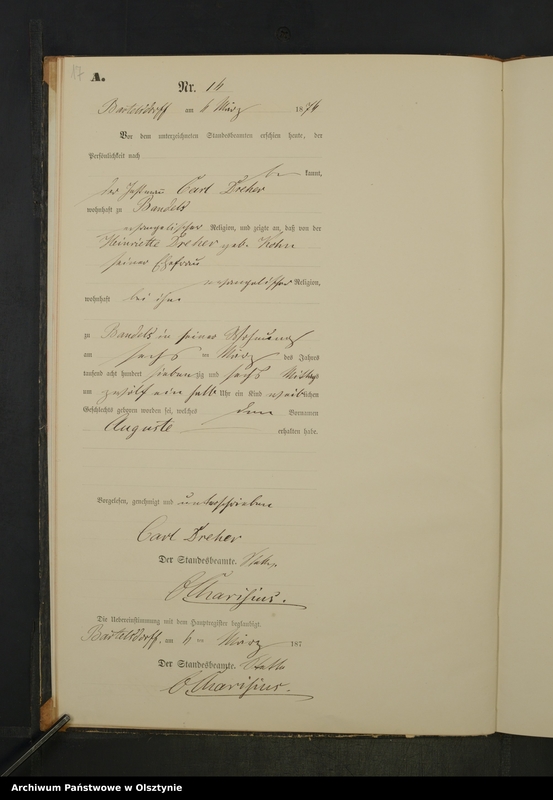 17
A.
Nr. 14
Bartelsdorff am März 1876
Vor dem unterzeichneten Standesbeamten erschien heute, der
Persönlichkeit nach
be kannt,
der Carl Dreher
wohnhaft zu Bandels
evangelischer Religion, und zeigte an, daß von der
Henriette Dreher geb. Kohn
seiner Ehefrau
evangelischer Religion,
wohnhaft bei ihm
zu Bandels in seiner Wohnung
am sechs ten März des Jahres
tausend acht hundert sieben zig und sechs Mittags
um zwölf ein halb Uhr ein Kind weib lichen
Geschlechts geboren worden sei, welches den Vornamen
Auguste erhalten habe.
Vorgelesen, genehmigt und unterschrieben
Carl Dreher
Der Standesbeamte.
Die Uebereinstimmung mit dem Hauptregister beglaubigt.
Bartelsdorff, am ten März 187
Der Standesbeamte.
Archiwum Państwowe w Olsztynie